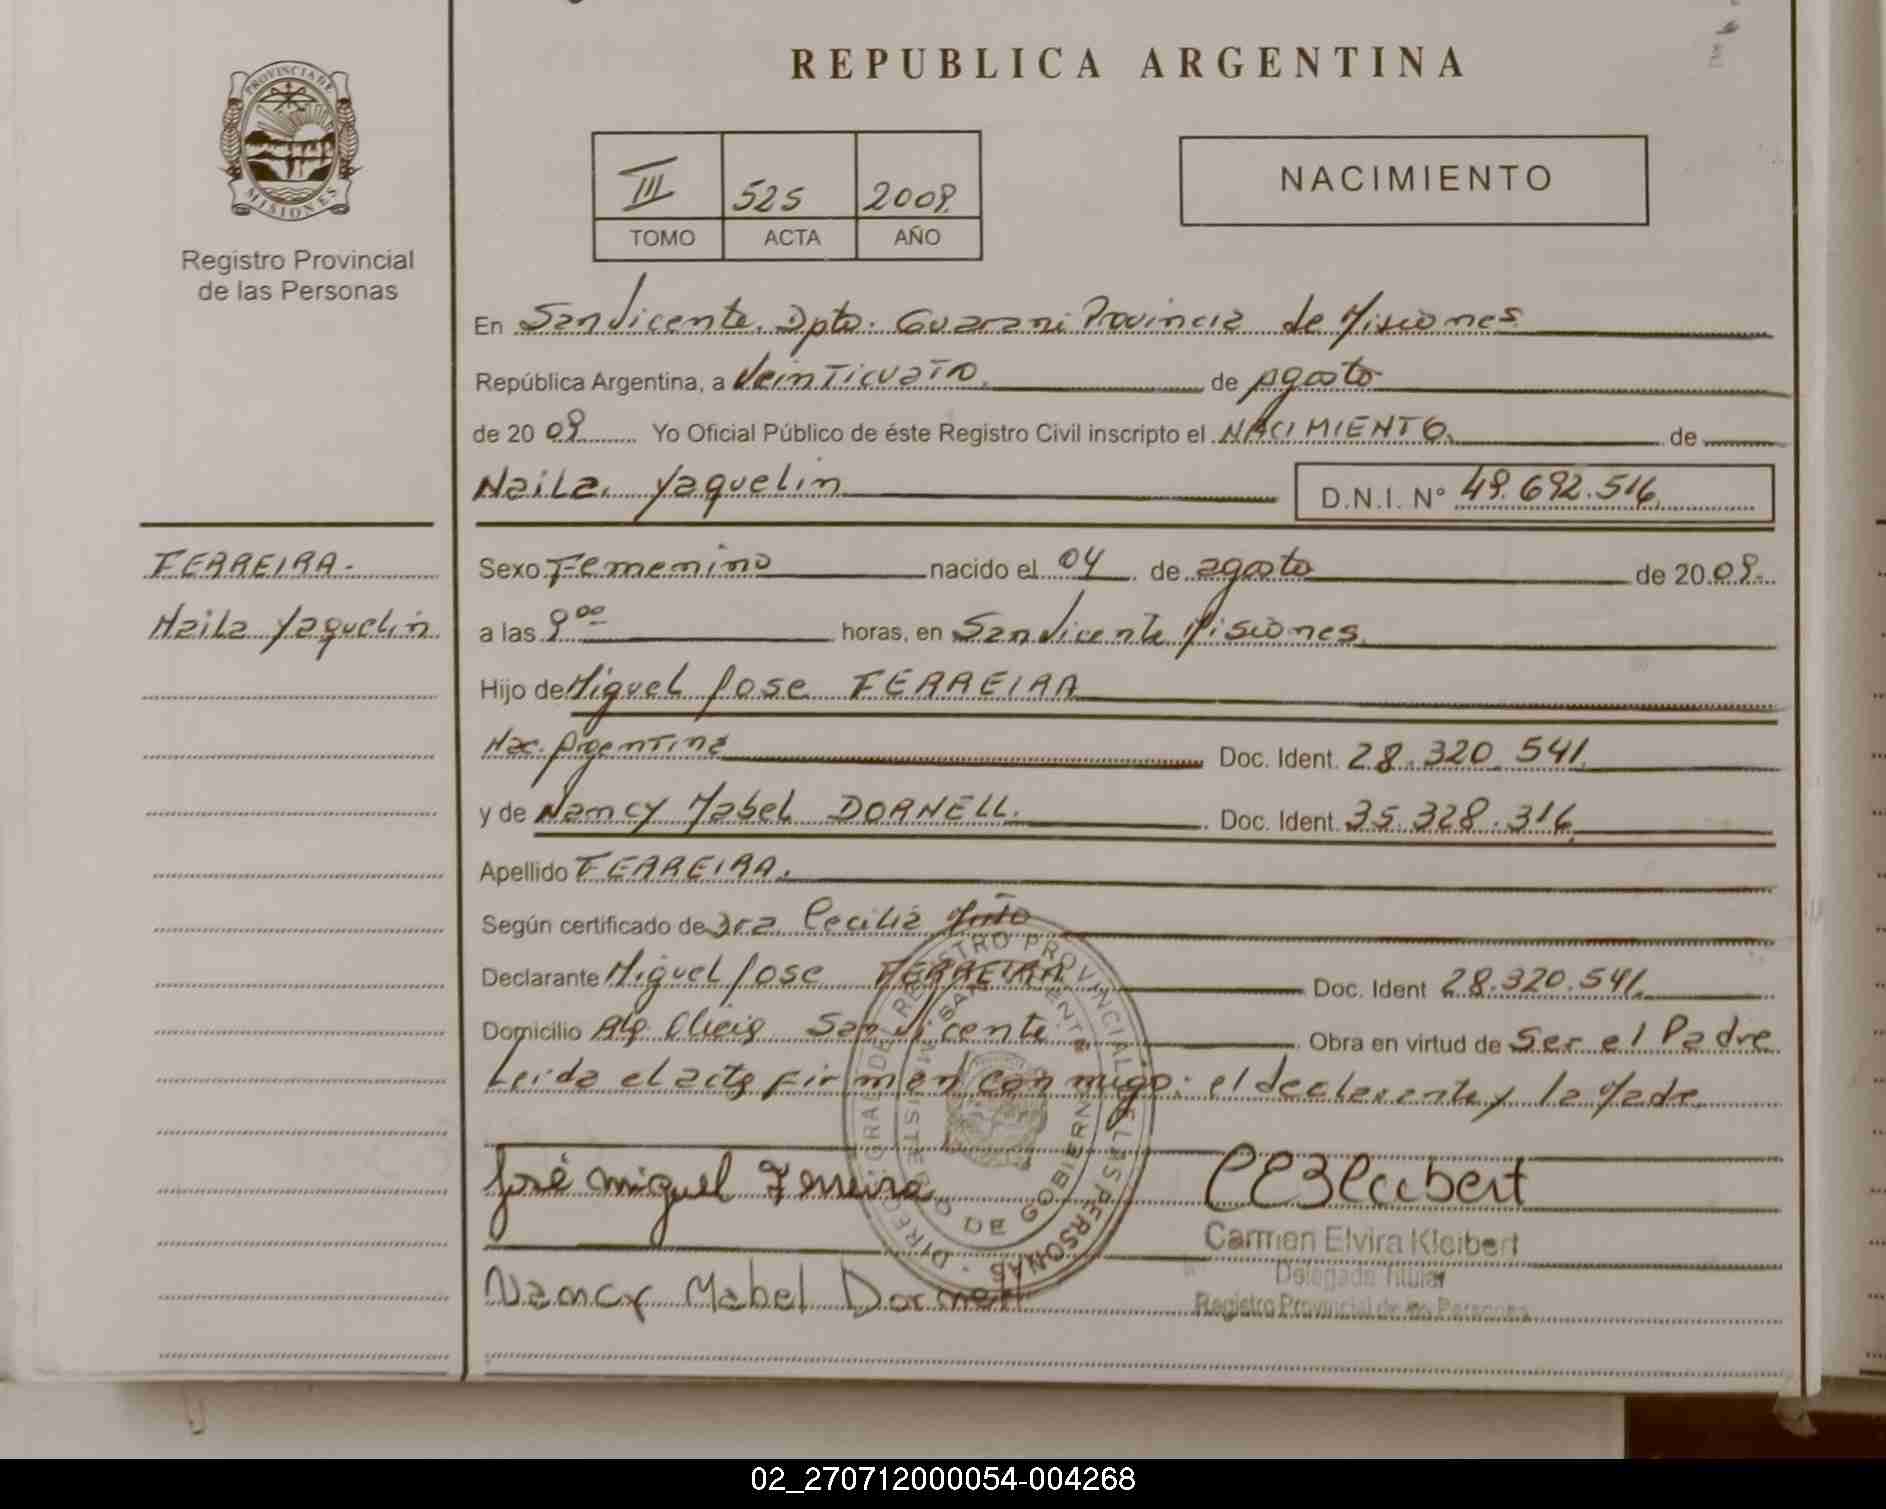 REPUBLICA ARGENTINA
PROVINCIA DE MISIONES
Registro Provincial
de las Personas
III 525 2009
TOMO ACTA AÑO
NACIMIENTO
En San Vicente. Dpto. Guarani Provincia de Misiones
República Argentina, a Veinticuatro de agosto
de 2009 Yo Oficial Público de éste Registro Civil inscripto el NACIMIENTO de
Naila Yaquelin D.N.I. Nº 49.692.516
FERREIRA.
Naila Yaquelin
Sexo Femenino nacido el 04 de agosto de 2009.
a las 9 00 horas, en San Vicente Misiones
Hijo de Miguel Jose FERREIRA
Nac. Argentina Doc. Ident. 28.320.541
y de Nancy Mabel DORNELL. Doc. Ident. 35.328.316
Apellido FERREIRA.
Según certificado de Dra Cecilia
Declarante Miguel Jose FERREIRA Doc. Ident 28.320.541
Domicilio San Vicente Obra en virtud de Ser el Padre
Leida el acta firman conmigo: el declarante y la Madre
José miguel Ferreira
Nancy Mabel Dornell
Carmen Elvira Kleibert
Delegada Titular
Registro Provincial de las Personas
DIREC. GRAL. DEL REGISTRO PROVINCIAL DE LAS PERSONAS
SAN VICENTE
MINISTERIO DE GOBIERNO
02_270712000054-004268